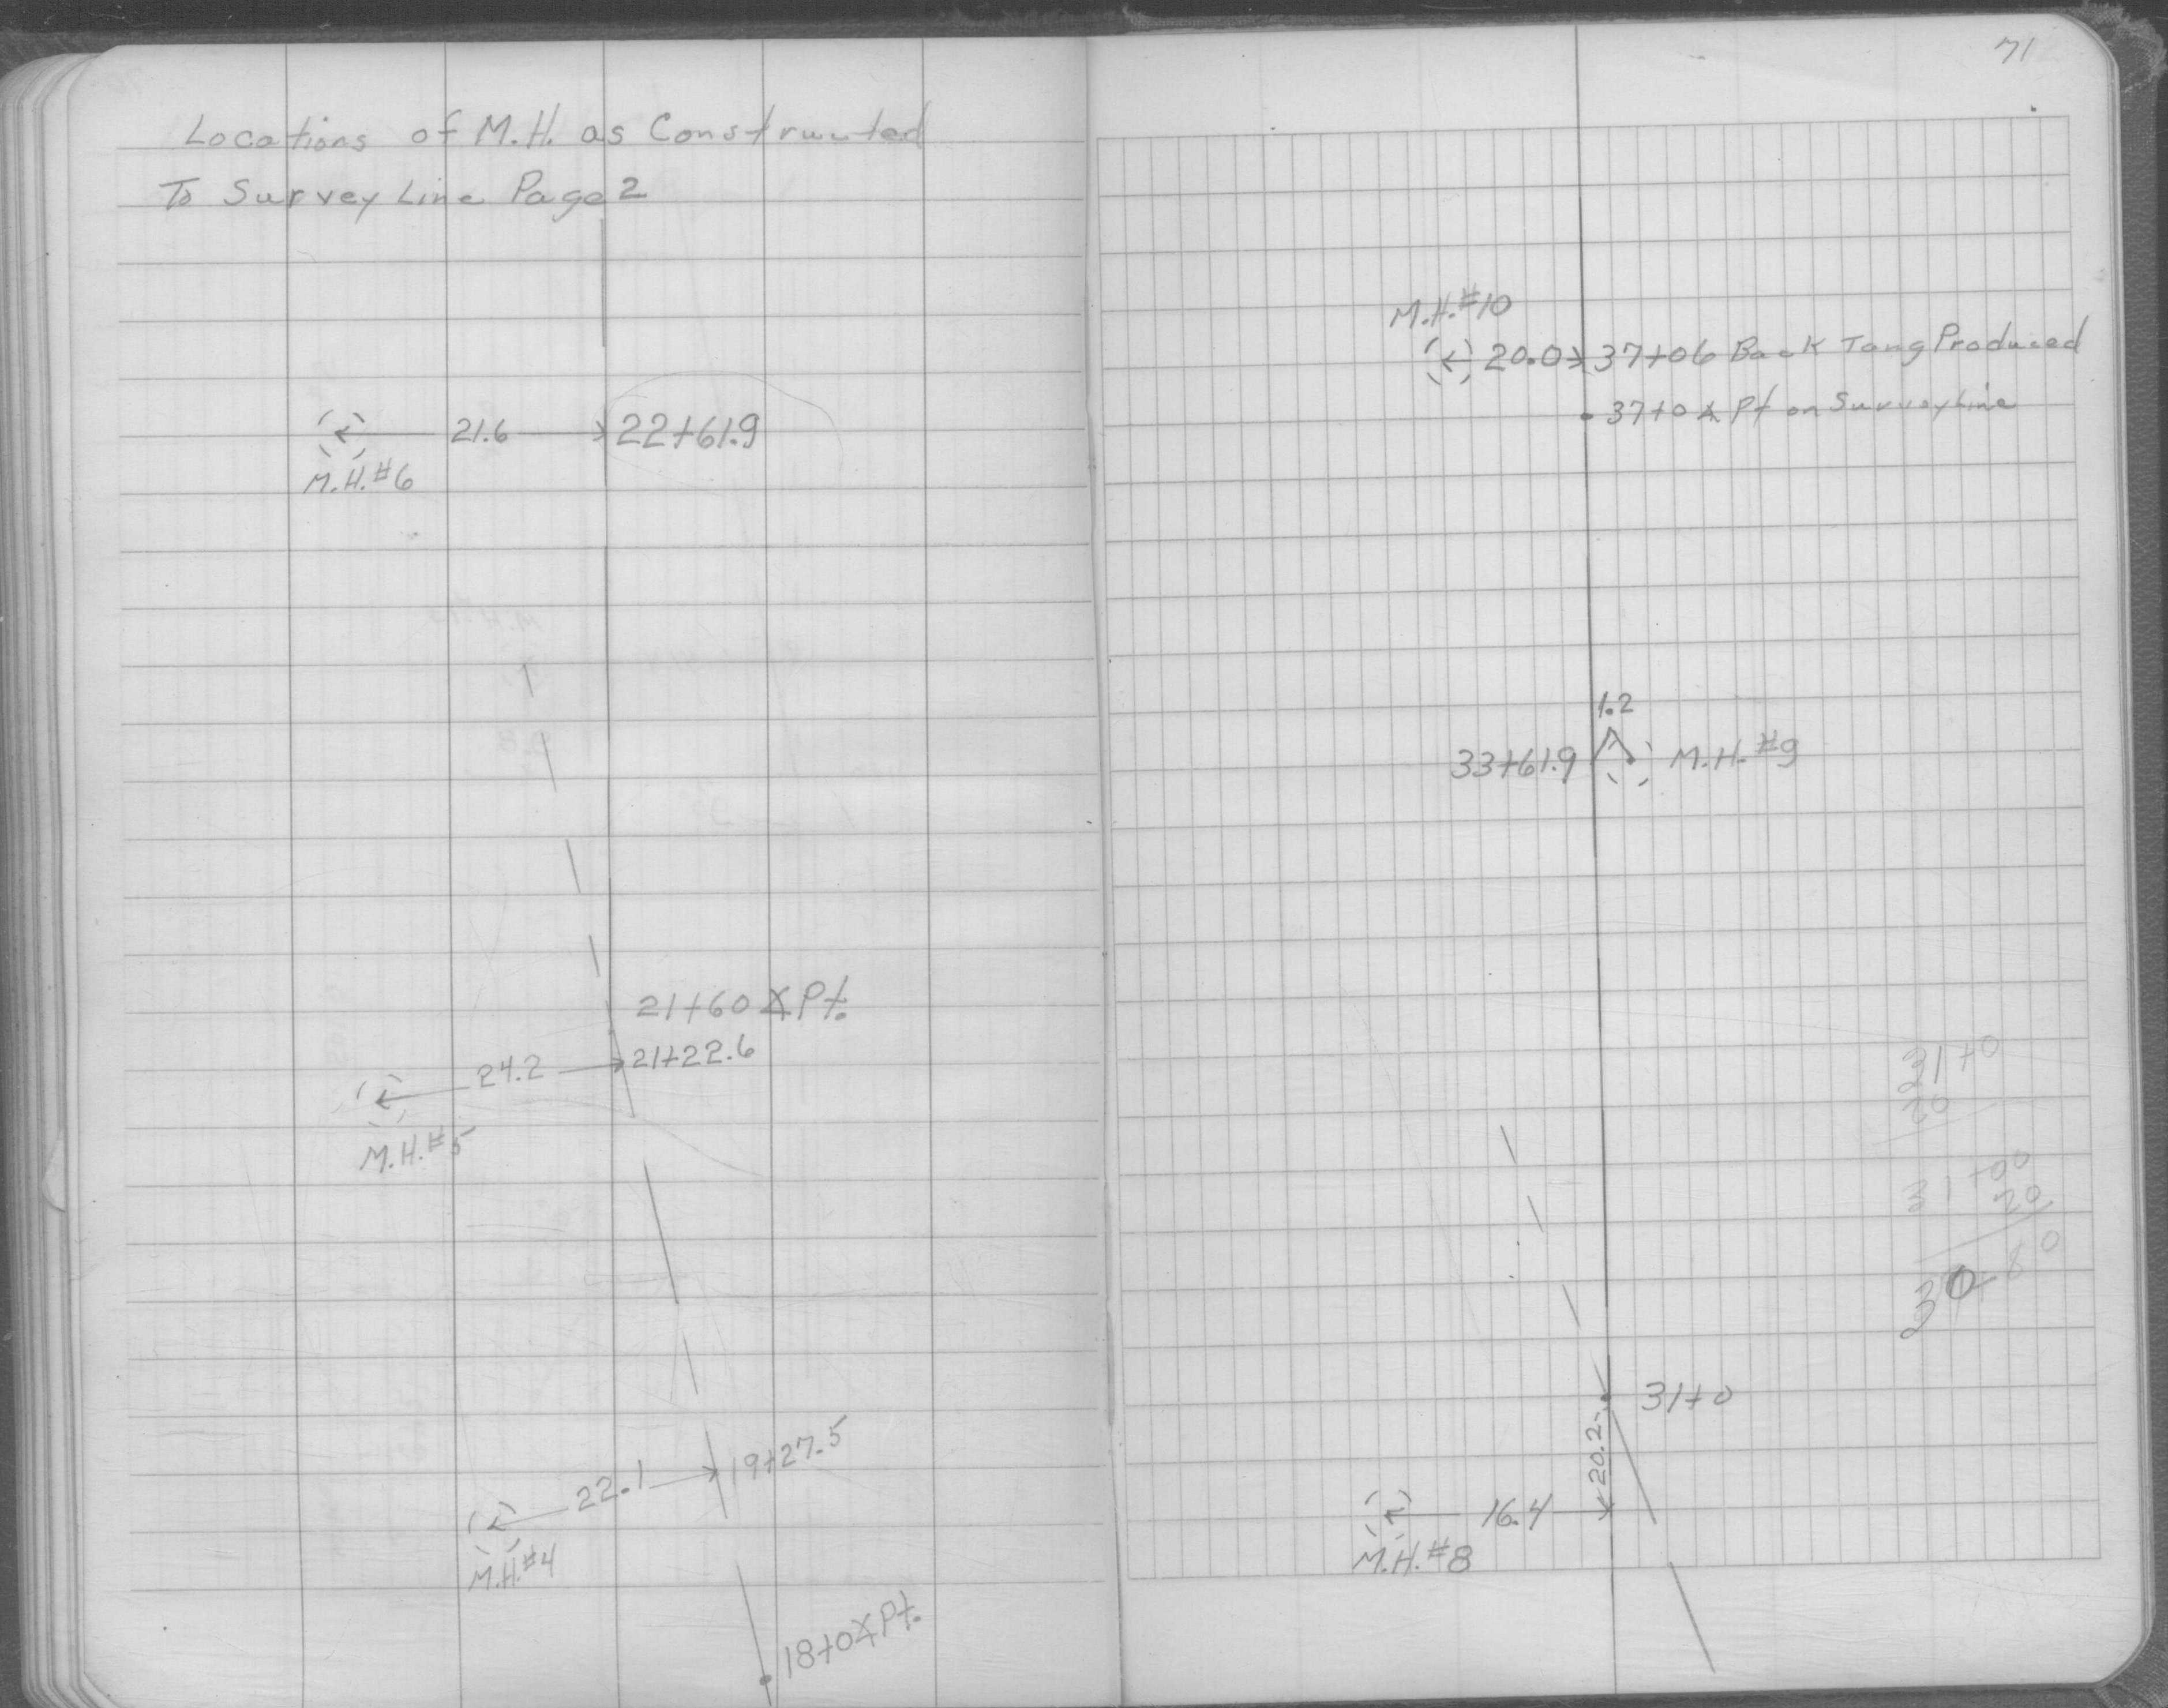 Locations of M.H. as Constructed
To Survey Line Page 2
21.6 22+61.9
M.H.#6
21+60 ∡ Pt.
24.2 21+22.6
M.H.#5
22.1 19+27.5
M.H.#4
18+0 ∡ Pt.
71
M.H.#10
20.0 37+06 Back Tang Produced
37+0 ∡ Pt on Survey Line
1.2
33+61.9 M.H.#9
31+0
20
31+00
20
30 80
31+0
20.2
16.4
M.H.#8